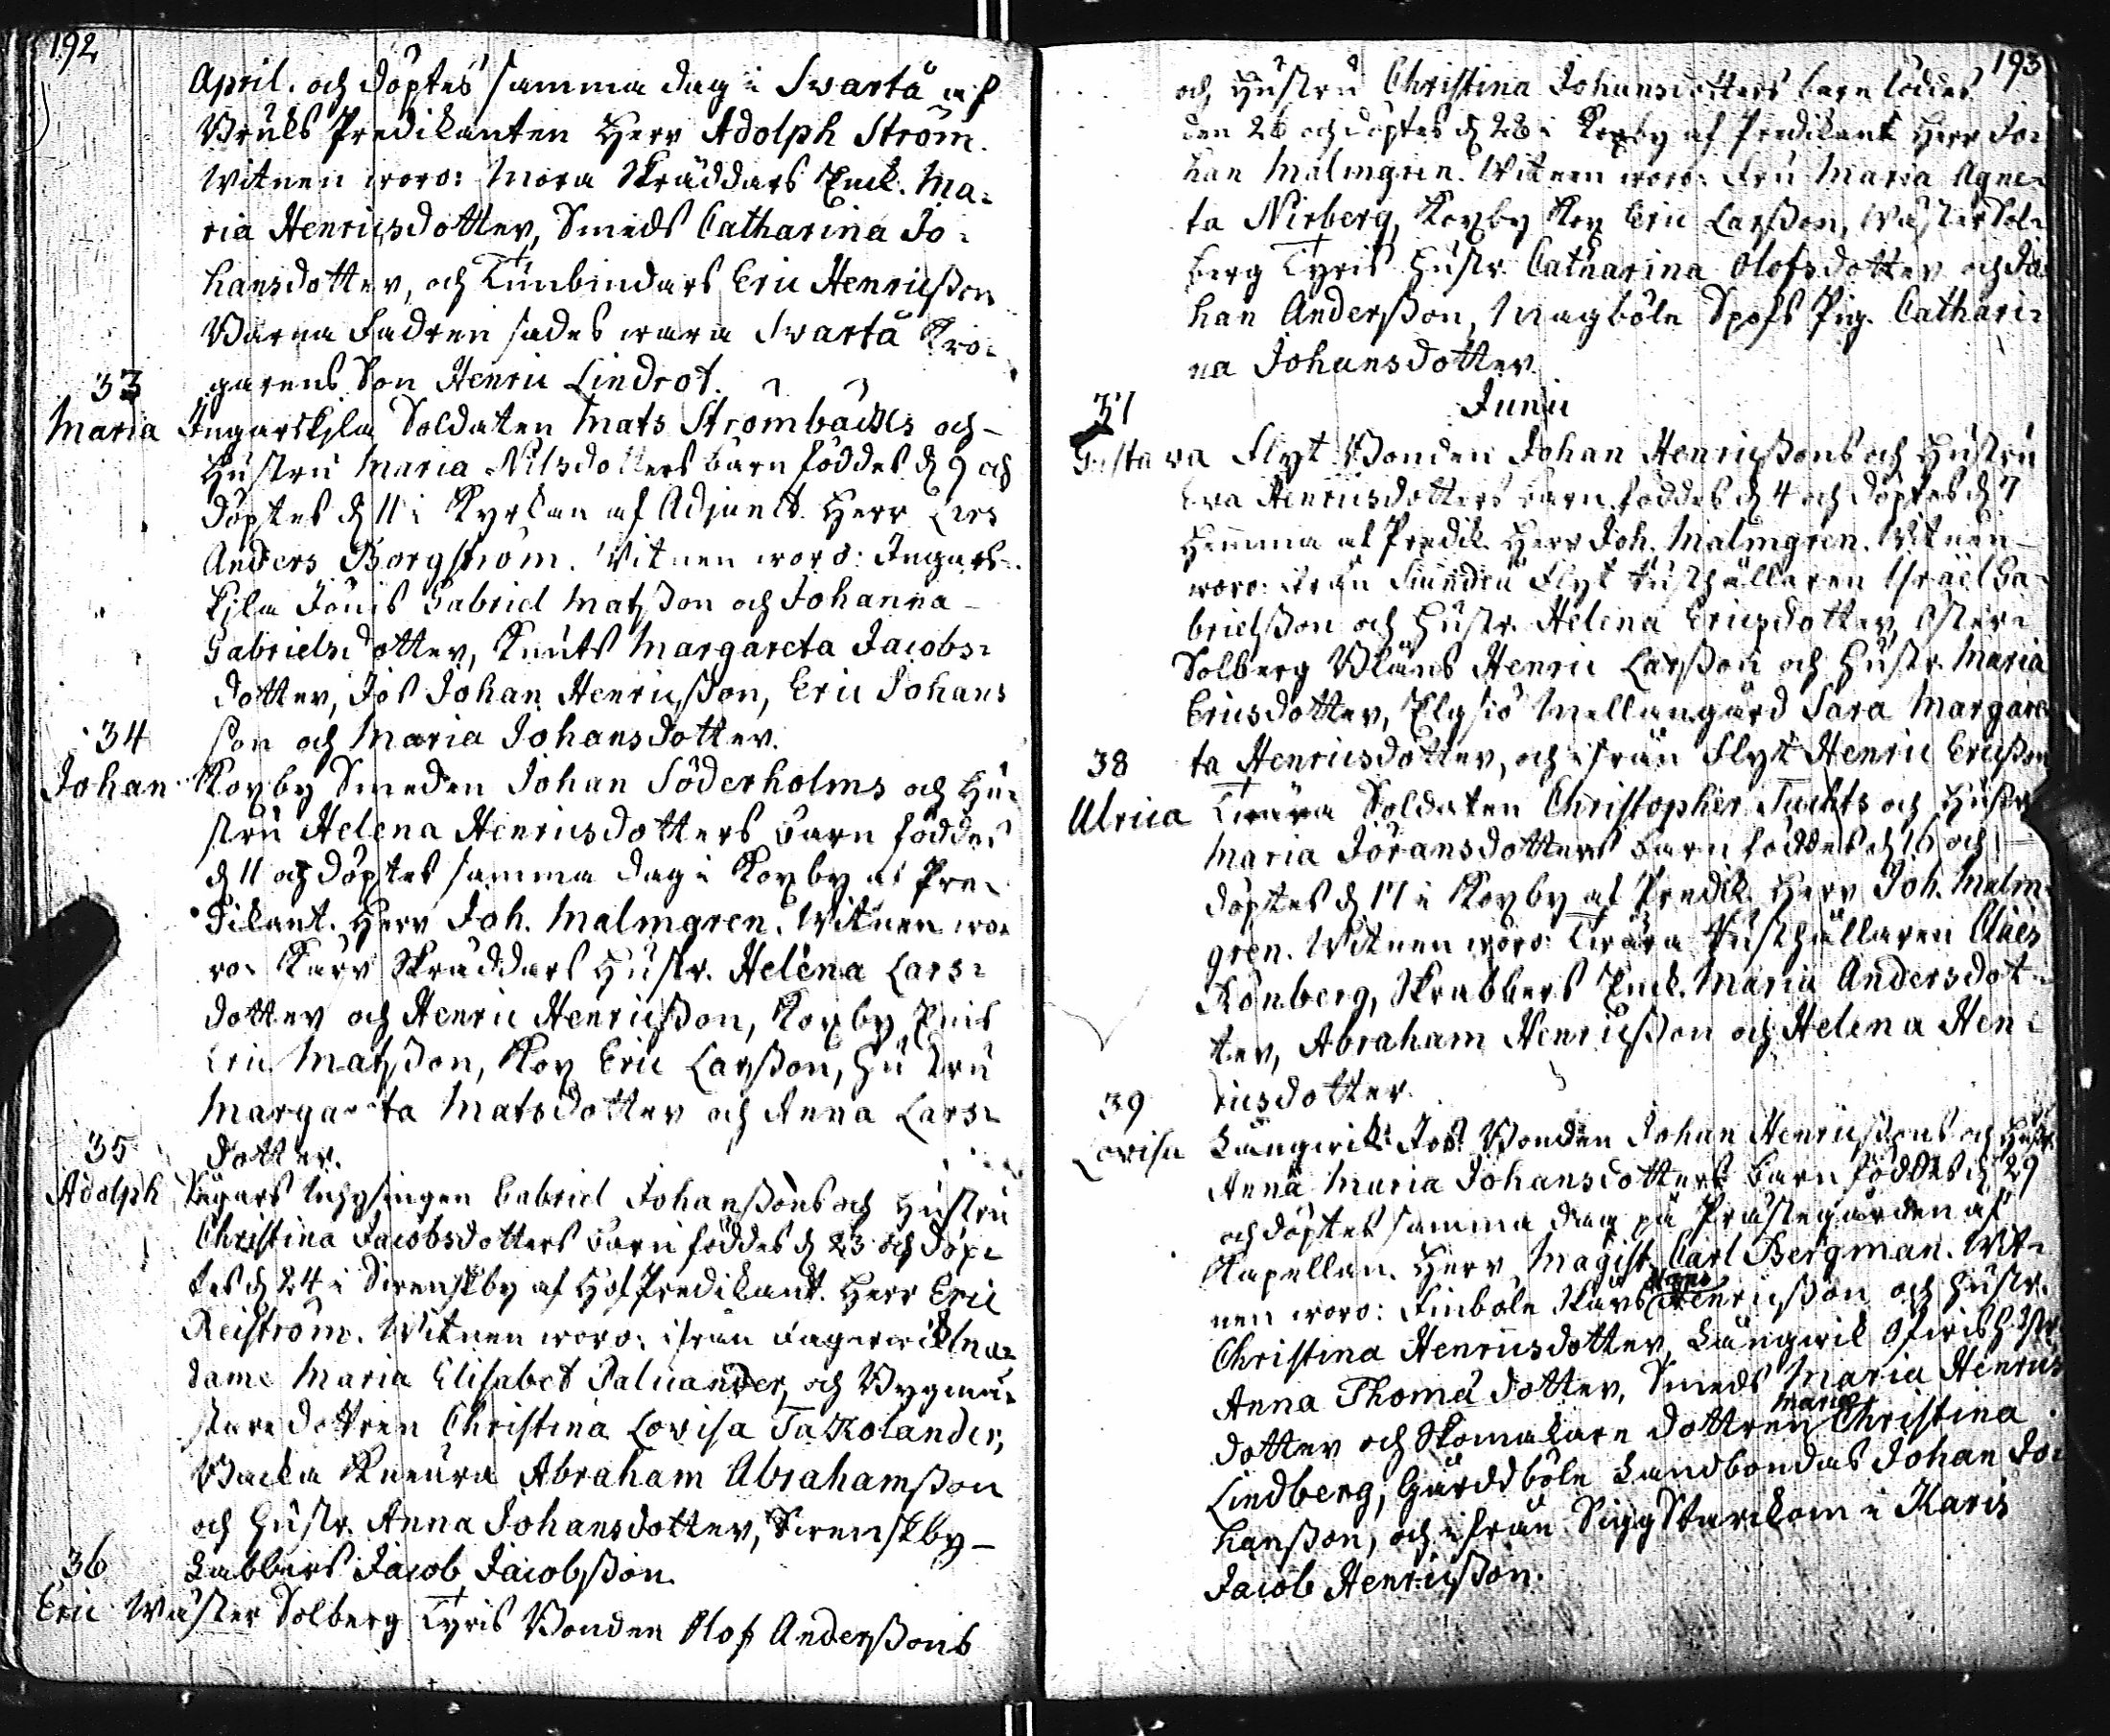 192
April. och döptes samma dag i Svartå af
Bruks Predikanten Herr Adolph Ström.
Witnen woro: Mora Skräddars Enck. Ma-
ria Henricsdotter, Smeds Catharina Jo-
hansdotter, och Tunbindars Eric Henricsson
Barna Fadren sades wara Svartå Kro-
garens Son Henric Lindrot.
33
Maria Ingarskila Soldaten Mats Strömbäcks och
Hustru Maria Nilsdotters barn föddes d. 9 och
döptes d. 11 i Kyrkan af Adjunct. Herr Lars
Anders Borgström. Witnen woro: Ingars-
kila Jönis Gabriel Matsson och Johanna
Gabrielsdotter, Knuts Margareta Jacobs-
dotter, Jos Johan Henricsson, Eric Johans
son och Maria Johansdotter.
34
Johan Koxby Smeden Johan Söderholms och Hu-
stru Helena Henricsdotters barn föddes
d. 11 och döptes samma dag i Koxby af Pre-
dikant. Herr Joh. Malmgren. Witnen wo-
ro: Karv Skräddars Hustr. Helena Lars-
dotter och Henric Henricsson, Koxby
Eric Matsson, Kox Eric Larsson, Hustru
Margareta Matsdotter och Anna Lars-
dotter.
35
Adolph Sågars Inhysingen Gabriel Johanssons och Hustru
Christina Jacobsdotters barn föddes d. 23 och döp-
tes d. 24 i Svenskby af Hof Predikant. Herr Eric
Reiström. Witnen woro: ifrån Fagerwik Ma-
dame Maria Elisabet Paluander, och Bygmä-
stare dottren Christina Lovisa Takolander,
Backa Kneura Abraham Abrahamsson
och Hustr. Anna Johansdotter, Svenskby
Labbers Jacob Jacobsson.
36
Eric Wäster Solberg Tyris Bonden Olof Anderssons
193
och Hustru Christina Johansdotters barn föddes
den 26 och döptes d. 28 i Koxby af Predikant Herr Jo-
han Malmgren. Witnen woro: Fru Maria Agne-
ta Nirberg, Koxby Kox Eric Larsson, Wäster Sol-
berg Tyris Hustr. Catharina Olofsdotter och Jo-
han Andersson, Magböle Spofs Pig. Cathari-
na Johansdotter.
Junii
37
Gustava Flyt Bonden Johan Henricssons och Hustru
Eva Henricsdotters barn föddes d. 4 och döptes d. 7
Hemma af Predik. Herr Joh. Malmgren. Witnen
woro: ifrån Flyt Rusthållaren Israel Ga-
brielsson och Hustr. Helena Ericsdotter, Öster-
Solberg Blåns Henric Larsson och Hustr. Maria
Ericsdotter, Elgsiö Mellangård Sara Margare-
ta Henricsdotter, och ifrån Flyt Henric Ericsson
38
Ulrica Twära Soldaten Christopher Tackts och Hustr
Maria Jöransdotters barn föddes d. 16 och
döptes d. 17 i Koxby af Predik. Herr Joh. Malm-
gren. Witnen woro: Twära Rusthållaren Claes
Rönberg, Skrabbers Enck. Maria Andersdot-
ter, Abraham Henricsson och Helena Hen-
ricsdotter.
39
Lovisa Långwik Jos Bonden Johan Henricssons och Hustr.
Anna Maria Johansdotters barn föddes d. 29
och döptes samma dag på Prästegården af
Kapellan. Herr Magist. Carl Bergman. Wit-
nen woro: Finböle Skärs Hans Henricsson och Hustr.
Christina Henricsdotter, Långwik Hustr.
Anna Thomædotter, Smeds Maria Henrics
dotter och Skomakare dottren Maria Christina
Lindberg, Gårdböle Landbondas Johan Jo-
hansson, och ifrån Sigg Starckom i Karis
Jacob Henricsson.